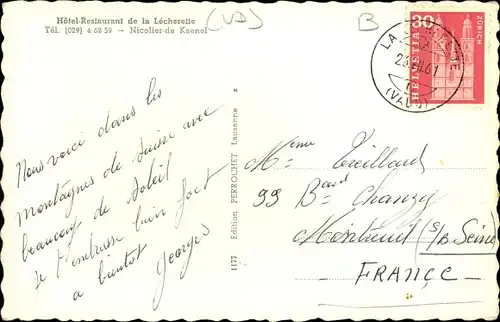 Hôtel-Restaurant de la Lécherette
Tél. (029) 4 62 59 - Nicolier-de Kaenel
(VD)
B
30
HELVETIA
ZÜRICH
LA
61
(VAUD)
Nous voici dans les
montagnes de Suisse avec
beaucoup de Soleil
Je t'embrasse bien fort
a bientot
Georges
1177 Edition, PERROCHET Lausanne
Mme Treillard
99 Bard Chanzy
Montreuil (s/s Seine
FRANCE